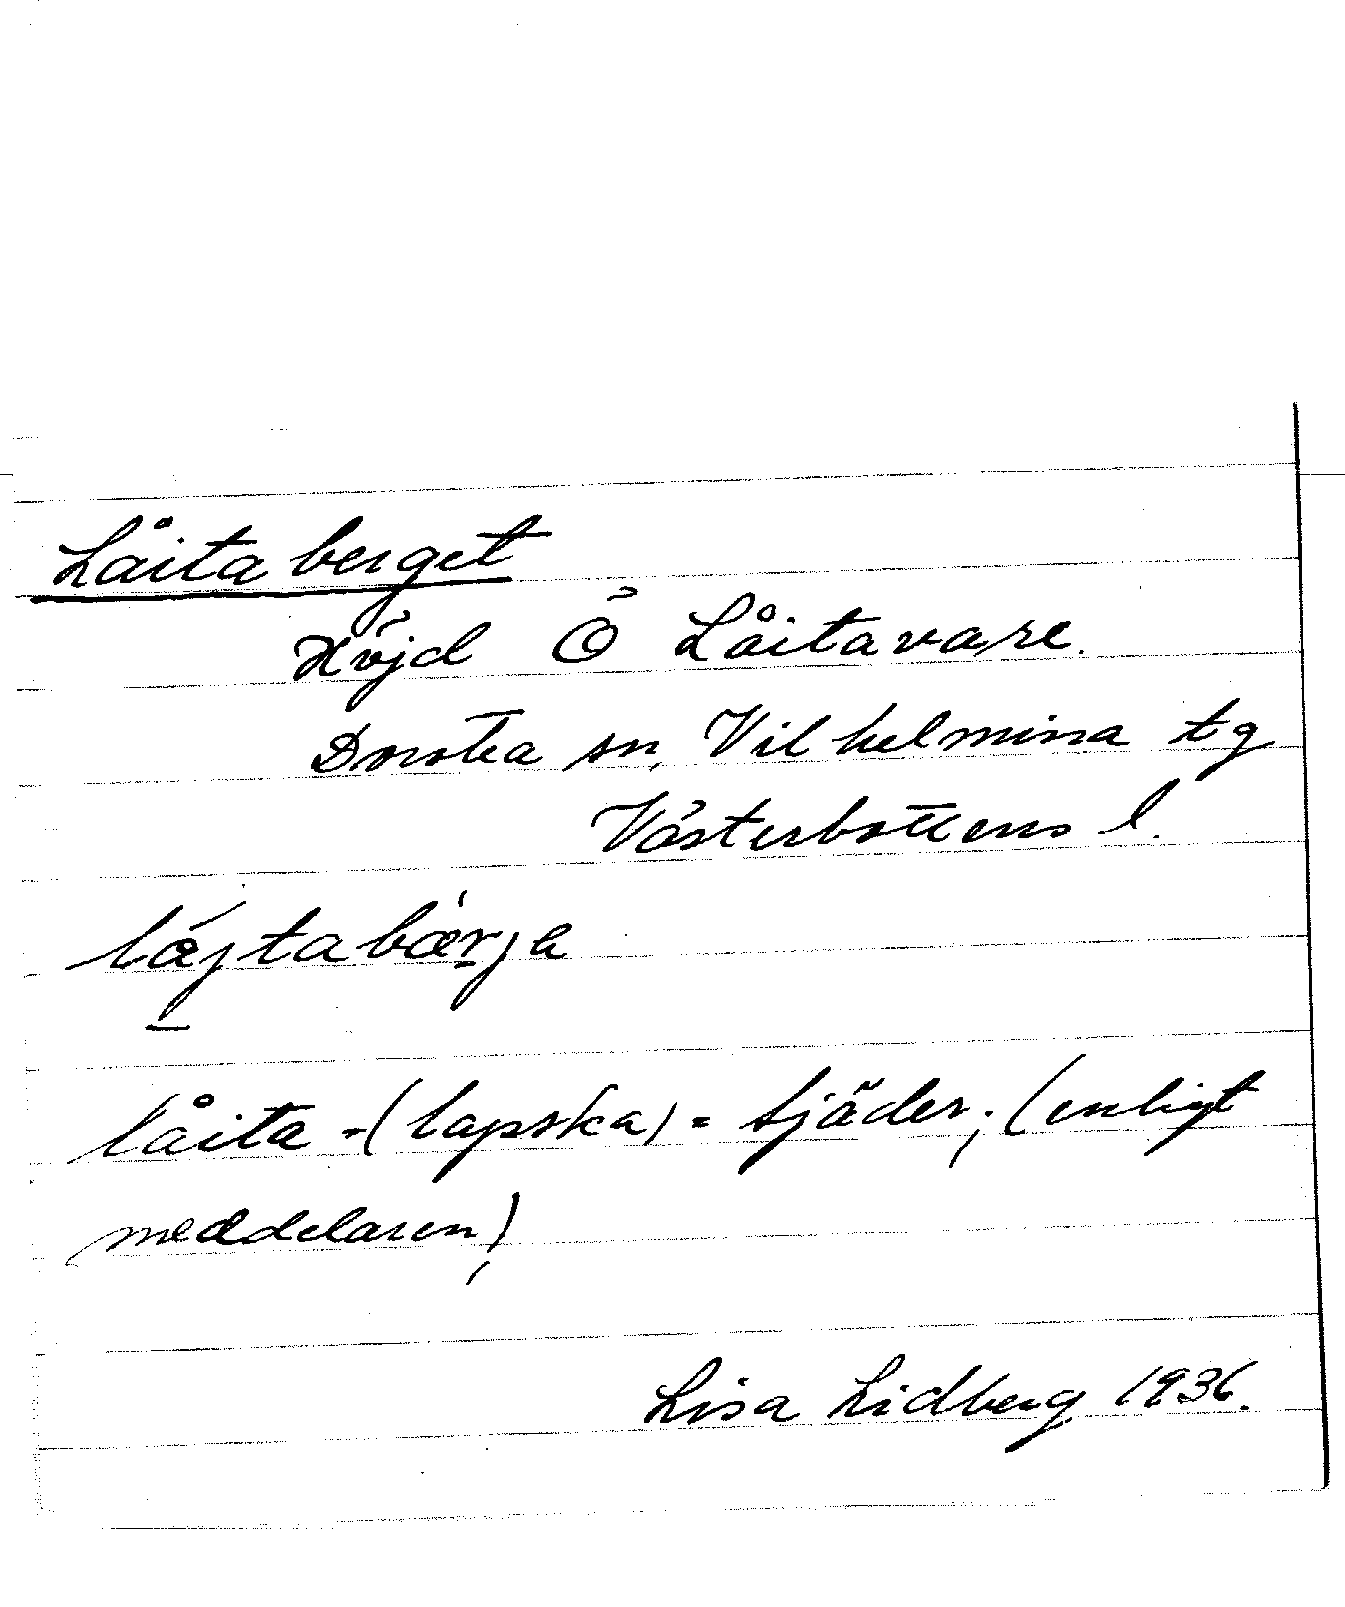 Låitaberget
Höjd Ö Låitavare.
Dorotea sn, Vilhelmina tg
Västerbottens l.
låita - (lapska) = tjäder; (enligt
meddelaren)
Lisa Lidberg 1936.